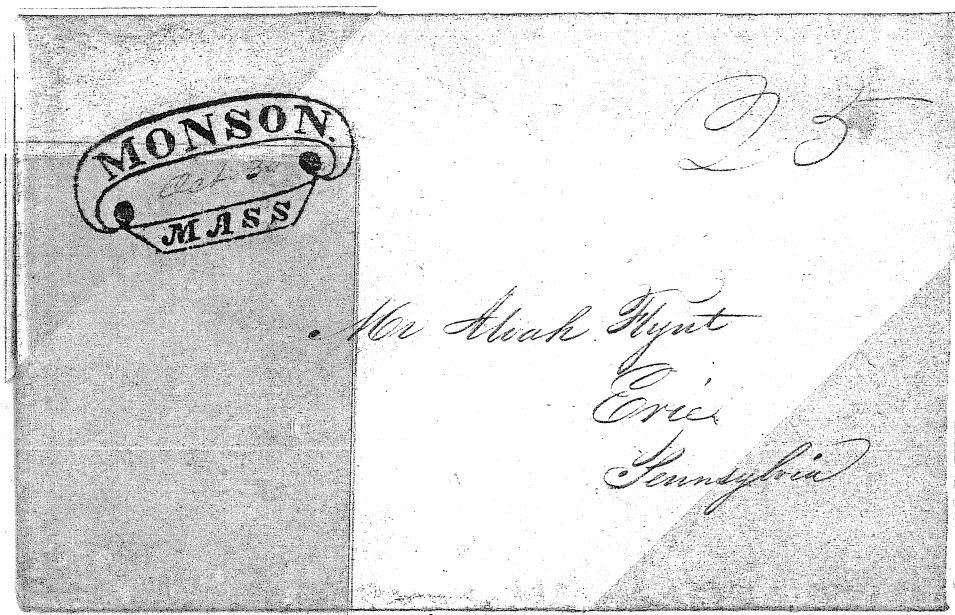 MONSON.
Oct 30
MASS
25
Mr Alvah Flynt
Erie
Pennsylvia